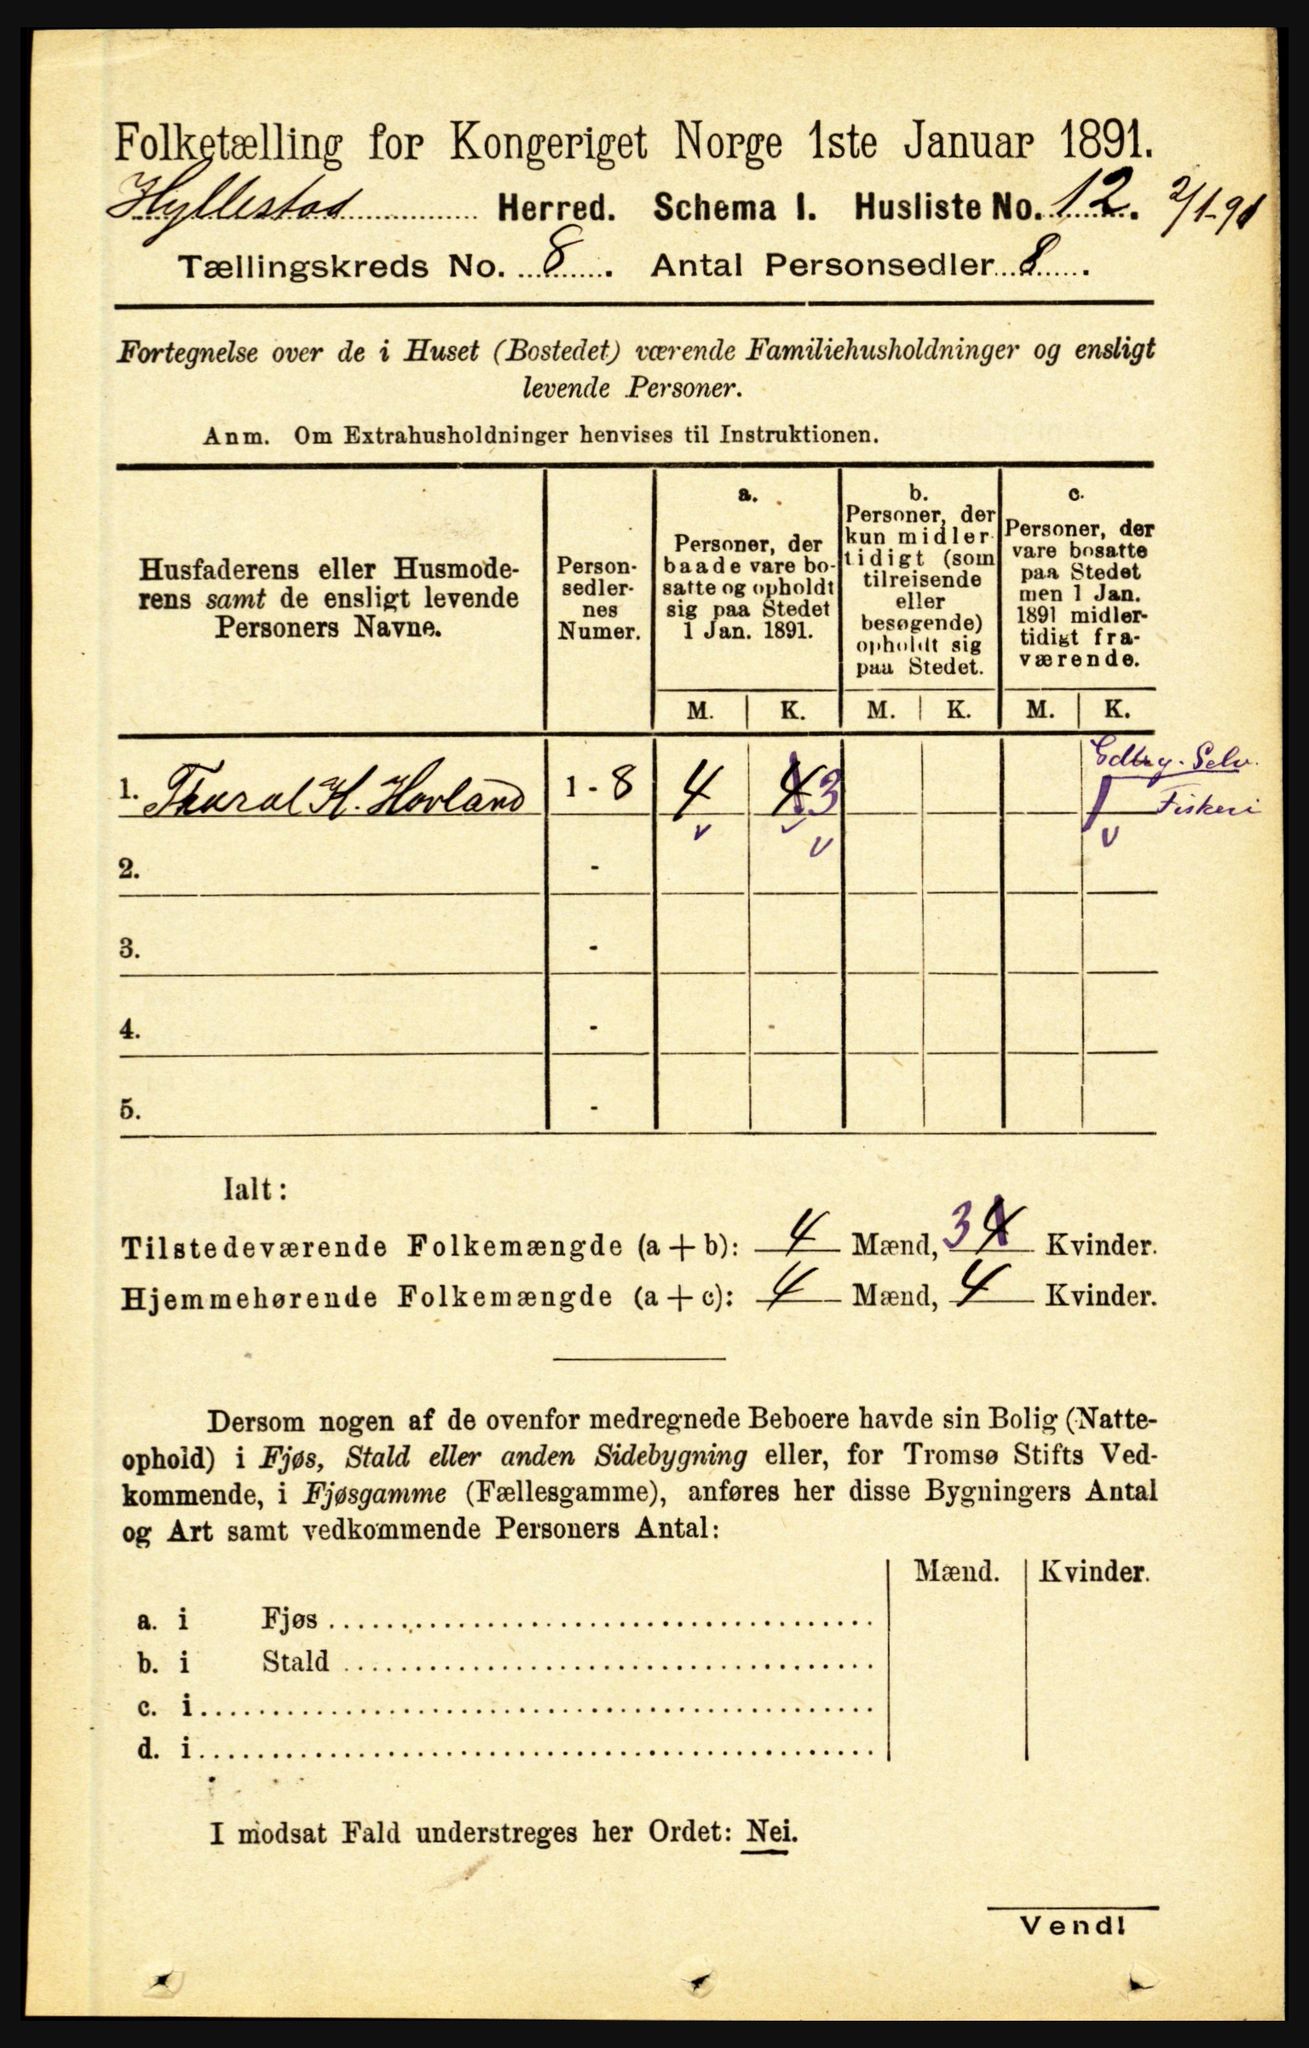 Folketælling for Kongeriget Norge 1ste Januar 1891.
Hyllestad Herred. Schema I. Husliste No. 12. 2/1-91
Tællingskreds No. 8. Antal Personsedler 8.
Fortegnelse over de i Huset (Bostedet) værende Familiehusholdninger og ensligt
levende Personer.
Anm. Om Extrahusholdninger henvises til Instruktionen.
Husfaderens eller Husmode-
rens samt de ensligt levende
Personers Navne.
Person-
sedler-
nes
Numer.
a.
Personer, der
baade vare bo-
satte og opholdt
sig paa Stedet
1 Jan. 1891.
b.
Personer, der
kun midler-
tidigt (som
tilreisende
eller
besøgende)
opholdt sig
paa Stedet.
c.
Personer, der
vare bosatte
paa Stedet
men 1 Jan.
1891 midler-
tidigt fra-
værende.
M. K. M. K. M. K.
1. H. Hovland 1 - 8 4 4 3 1
Selv.
Fiskeri
2. -
3. -
4. -
5. -
Ialt:
Tilstedeværende Folkemængde (a + b): 4 Mænd, 3 4 Kvinder.
Hjemmehørende Folkemængde (a + c): 4 Mænd, 4 Kvinder.
Dersom nogen af de ovenfor medregnede Beboere havde sin Bolig (Natte-
ophold) i Fjøs, Stald eller anden Sidebygning eller, for Tromsø Stifts Ved-
kommende, i Fjøsgamme (Fællesgamme), anføres her disse Bygningers Antal
og Art samt vedkommende Personers Antal:
Mænd. Kvinder.
a. i Fjøs
b. i Stald
c. i
d. i
I modsat Fald understreges her Ordet: Nei.
Vend!